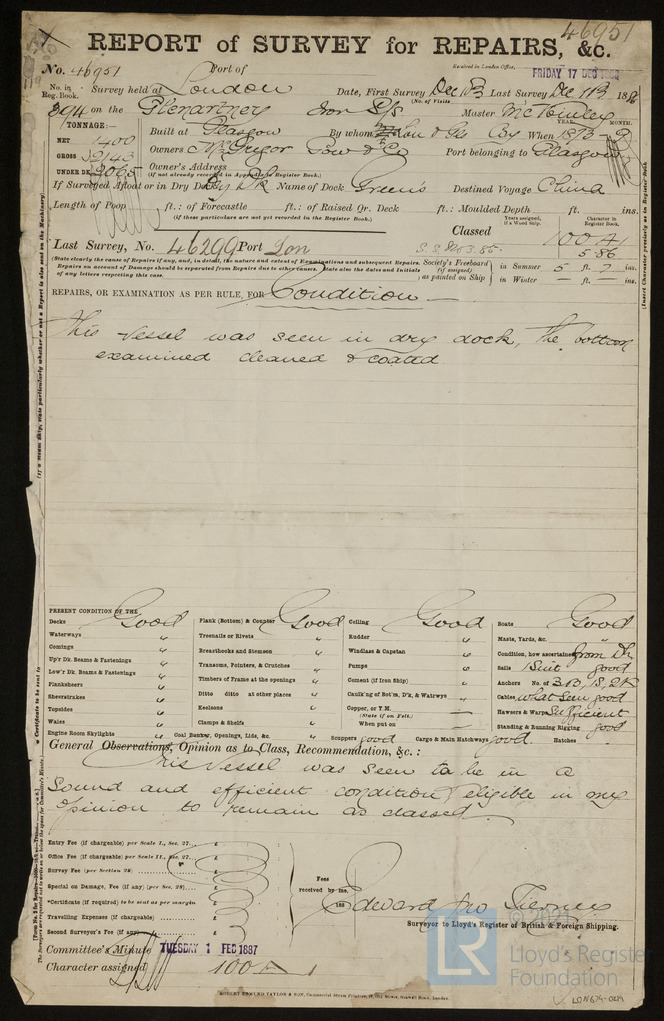 46951
REPORT of SURVEY for REPAIRS, &c.
No. 46951 Port of Received in London Office, FRIDAY 17 DEC
No. in Reg. Book. Survey held at London Date, First Survey Dec 10 Last Survey Dec 11 188
(No. of Visits
394 on the Glenartney Iron S/s Master McKinley
TONNAGE:— YEAR. MONTH.
NET 1400 Built at Glasgow By whom When 1873 9
GROSS 2143 Owners McGregor Gow & Co Port belonging to Glasgow
UNDER DK 2065 Owner's Address
(if not already recorded in Appendix to Register Book.)
If Surveyed Afloat or in Dry Dock Dry Dk Name of Dock Green's Destined Voyage China
Length of Poop ft.: of Forecastle ft.: of Raised Qr. Deck ft.: Moulded Depth ft. ins.
(if these particulars are not yet recorded in the Register Book.)
Years assigned, if a Wood Ship. Character in Register Book.
Classed 100 A1
5.86
Last Survey, No. 46299 Port Lon
(State clearly the cause of Repairs if any, and, in detail, the nature and extent of Examinations and subsequent Repairs.
Repairs on account of Damage should be separated from Repairs due to other causes. State also the dates and Initials
of any letters respecting this case.
Society's Freeboard (if assigned) as painted on Ship
in Summer 5 ft. 7 ins.
in Winter — ft. — ins.
REPAIRS, OR EXAMINATION AS PER RULE, FOR Condition —
This Vessel was seen in dry dock, the bottom
examined cleaned & coated
PRESENT CONDITION OF THE
Decks Good
Waterways "
Comings "
Up'r Dk. Beams & Fastenings "
Low'r Dk. Beams & Fastenings "
Planksheers "
Sheerstrakes "
Topsides "
Wales "
Engine Room Skylights "
Plank (Bottom) & Counter Good
Treenails or Rivets "
Breasthooks and Stemson "
Transoms, Pointers, & Crutches "
Timbers of Frame at the openings "
Ditto ditto at other places "
Keelsons "
Clamps & Shelfs "
Coal Bunker, Openings, Lids, &c. "
Ceiling Good
Rudder "
Windlass & Capstan "
Pumps "
Cement (if Iron Ship) "
Caulk'ng of Bot'm, D'k, & Watrwys "
Copper, or Y.M. —
(State if on Felt.)
When put on —
Scuppers good Cargo & Main Hatchways good
Boats Good
Masts, Yards, &c. "
Condition, how ascertained from Dk
Sails 1 Suit good
Anchors No. of 3B, 1S, 2K
Cables what seen good
Hawsers & Warps Sufficient
Standing & Running Rigging good
Hatches "
General Observations, Opinion as to Class, Recommendation, &c.:
This Vessel was seen to be in a
sound and efficient condition eligible in my
opinion to remain as classed
Entry Fee (if chargeable) per Scale I., Sec. 27... £
Office Fee (if chargeable) per Scale II., Sec. 27... £
Survey Fee (per Section 28) £
Special on Damage, Fee (if any) (per Sec. 28)... £
*Certificate (if required) to be sent as per margin £
Travelling Expenses (if chargeable) £
Second Surveyor's Fee (if any) £
Fees received by me,
188
Edward Jno Tierney
Surveyor to Lloyd's Register of British & Foreign Shipping.
Committee's Minute TUESDAY 1 FEB 1887
Character assigned 100 A
ROBERT EDMUND TAYLOR & SON,
© 2021
LR
Lloyd's Register
Foundation
LON674-0119